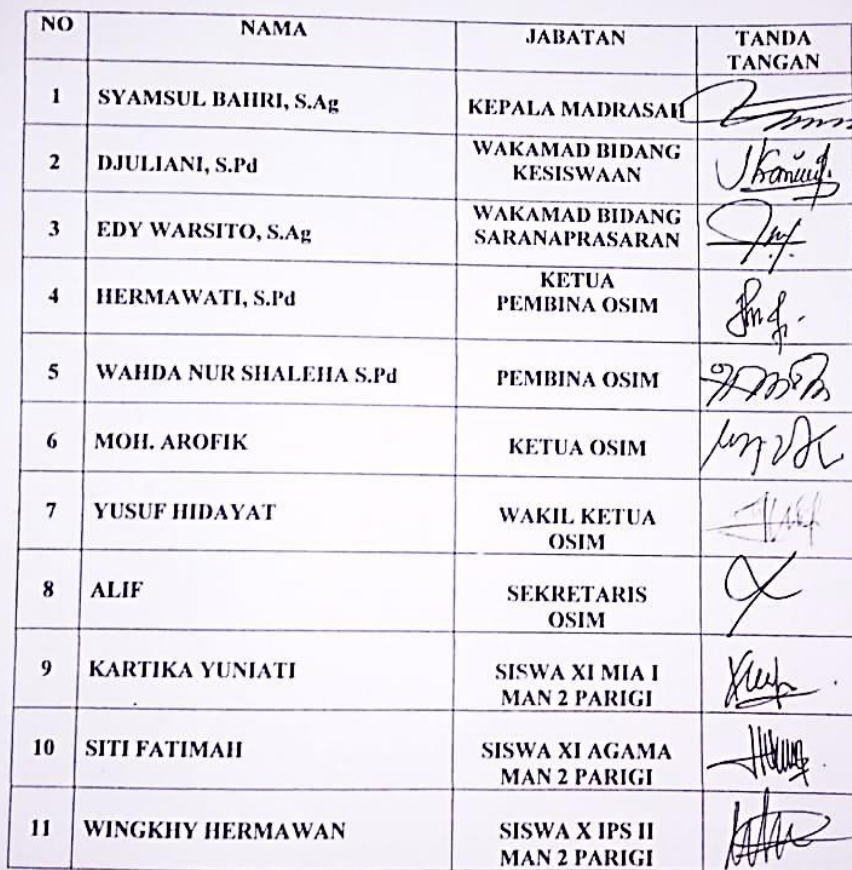 NO NAMA JABATAN TANDA
TANGAN
1 SYAMSUL BAHRI, S.Ag KEPALA MADRASAH
2 DJULIANI, S.Pd WAKAMAD BIDANG
KESISWAAN
3 EDY WARSITO, S.Ag WAKAMAD BIDANG
SARANAPRASARAN
4 HERMAWATI, S.Pd KETUA
PEMBINA OSIM
5 WAHDA NUR SHALEHA S.Pd PEMBINA OSIM
6 MOH. AROFIK KETUA OSIM
7 YUSUF HIDAYAT WAKIL KETUA
OSIM
8 ALIF SEKRETARIS
OSIM
9 KARTIKA YUNIATI SISWA XI MIA I
MAN 2 PARIGI
10 SITI FATIMAH SISWA XI AGAMA
MAN 2 PARIGI
11 WINGKHY HERMAWAN SISWA X IPS II
MAN 2 PARIGI